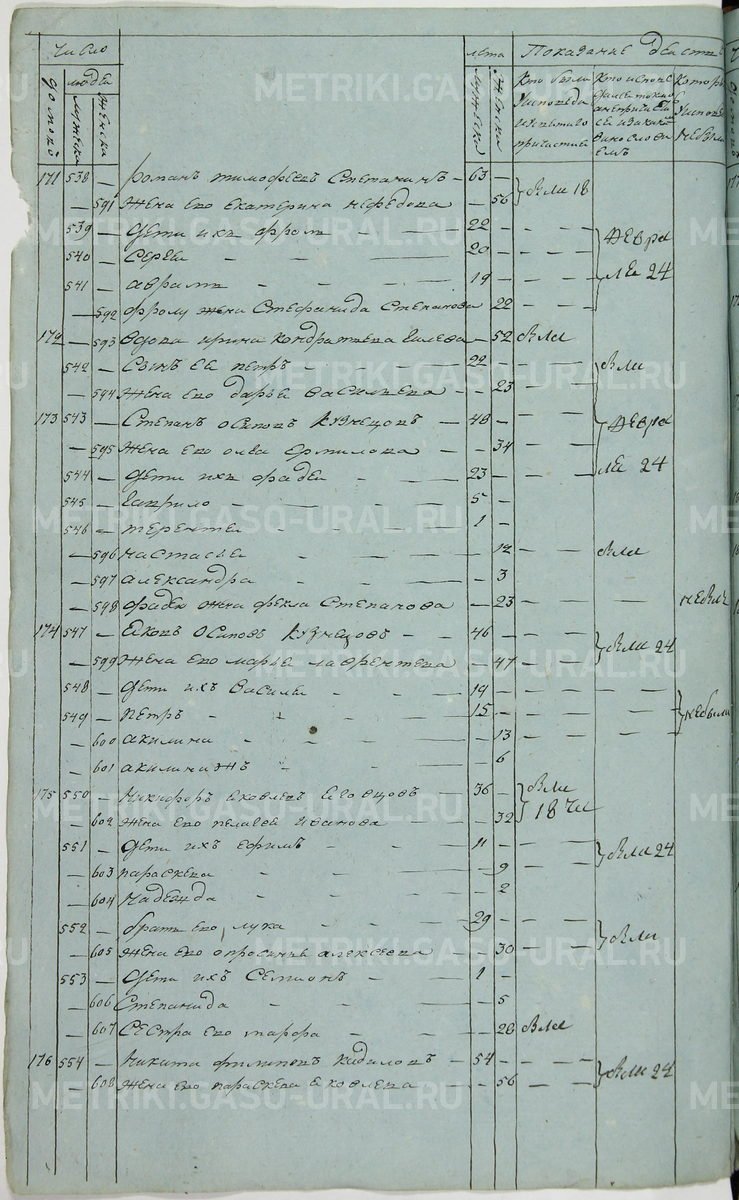 Число лета Показание действ
домовъ людей мужеска женска мужеска женска
Кто были у исповеди и святаго причастия
Кто исповедался токмо а не причастился и за какимъ винословиемъ
Которы у исповеди не были
171 538 — Романъ Тимофеевъ Степанинъ — 63 — были 18
— 591 Жена его Екатерина Нефедова — 56
539 — Дети ихъ Фролъ — 22 — Февра
540 — Сергей — 20 —
541 — Аврамъ — 19 — ля 24
— 592 Фролу жена Стефанида Степанова 22
172 — 593 Вдова Ирина Кондратьева — 52 была
542 — Сынъ ее Петръ — 22 — были
— 594 Жена его Дарья Васильева — 23
173 543 — Степанъ Осиповъ Кузнецовъ — 48 — Февра
— 595 Жена его Ермилова — 34
544 — Дети ихъ Фадей — 23 — ля 24
545 — Гаврило — 5 —
546 — Терентей — 1 —
— 596 Настасья — 12 была
— 597 Александра — 3
— 598 Фадею жена Фекла Степанова — 23 — небыл
174 547 — Яковъ Осиповъ Кузнецовъ — 46 были 24
— 599 Жена его Марья Лаврентьева — 47
548 — Дети ихъ Василей — 19 —
549 — Петръ — 15 — небыли
— 600 Акилина — 13
— 601 Акилина жъ — 6
175 550 — Никифоръ Яковлевъ — 36 — были
— 602 Жена его Пелагея Иванова — 32 18 чи
551 — Дети ихъ Ефимъ — 11 — были 24
— 603 Параскева — 9
— 604 Надежда — 2
552 — Братъ его Лука — 29 — были
— 605 Жена его Алексеева — 30
553 — Дети ихъ Семионъ — 1 —
— 606 Степанида — 5
— 607 Сестра его — 20 была
176 554 — Никита Филиповъ — 54 — были 24
— 608 Жена его Параскева Яковлева — 56
METRIKI.GASO-URAL.RU